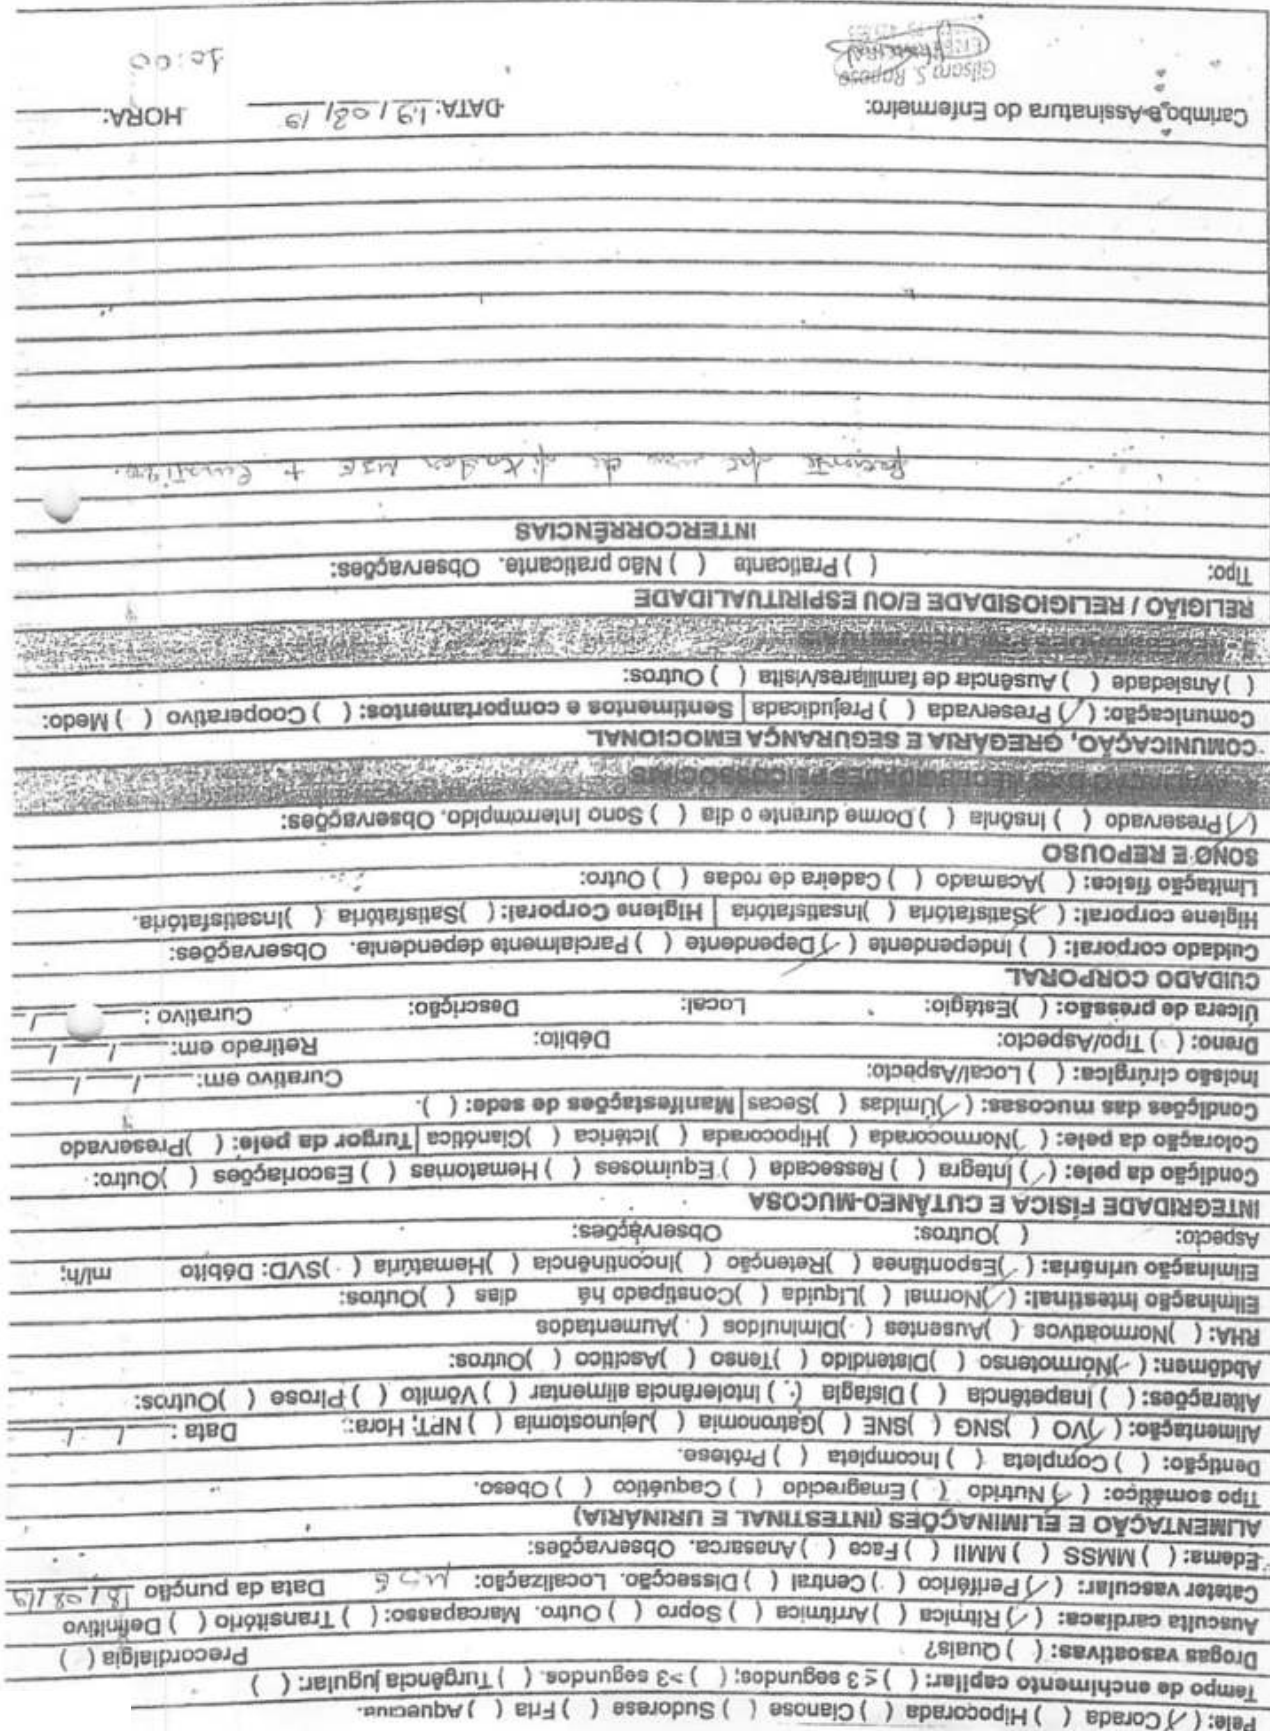 Pele: (✓) Corada ( ) Hipocorada ( ) Cianose ( ) Sudorese ( ) Fria ( ) Aquecida.
Tempo de enchimento capilar: ( ) ≤ 3 segundos; ( ) >3 segundos. ( ) Turgência jugular: ( )
Drogas vasoativas: ( ) Quais? Precordialgia ( )
Ausculta cardíaca: (✓) Rítmica ( ) Arrítmica ( ) Sopro ( ) Outro. Marcapasso: ( ) Transitório ( ) Definitivo
Cateter vascular: (✓) Periférico ( ) Central ( ) Dissecção. Localização: MSE Data da punção 18/08/19
Edema: ( ) MMSS ( ) MMII ( ) Face ( ) Anasarca. Observações:
ALIMENTAÇÃO E ELIMINAÇÕES (INTESTINAL E URINÁRIA)
Tipo somático: (✓) Nutrido ( ) Emagrecido ( ) Caquético ( ) Obeso.
Dentição: ( ) Completa ( ) Incompleta ( ) Prótese.
Alimentação: (✓)VO ( )SNG ( )SNE ( )Gatronomia ( )Jejunostomia ( ) NPT; Hora:: Data : / /
Alterações: ( ) Inapetência ( ) Disfagia ( ) Intolerância alimentar ( ) Vômito ( ) Pirose ( )Outros:
Abdômen: (✓)Nórmotenso ( )Distendido ( )Tenso ( )Ascítico ( )Outros:
RHA: ( )Normoativos ( )Ausentes ( )Diminuídos ( )Aumentados
Eliminação intestinal: (✓)Normal ( )Líquida ( )Constipado há dias ( )Outros:
Eliminação urinária: (✓)Espontânea ( )Retenção ( )Incontinência ( )Hematúria ( )SVD: Débito ml/h;
Aspecto: ( )Outros: Observações:
INTEGRIDADE FÍSICA E CUTÂNEO-MUCOSA
Condição da pele: (✓) Íntegra ( ) Ressecada ( ) Equimoses ( ) Hematomas ( ) Escoriações ( )Outro:
Coloração da pele: (✓)Normocorada ( )Hipocorada ( )Ictérica ( )Cianótica | Turgor da pele: ( )Preservado
Condições das mucosas: (✓)Úmidas ( )Secas | Manifestações de sede: ( ).
Incisão cirúrgica: ( ) Local/Aspecto: Curativo em: / /
Dreno: ( ) Tipo/Aspecto: Débito: Retirado em: / /
Úlcera de pressão: ( )Estágio: Local: Descrição: Curativo : / /
CUIDADO CORPORAL
Cuidado corporal: ( ) Independente (✓) Dependente ( ) Parcialmente dependente. Observações:
Higiene corporal: (✓)Satisfatória ( )Insatisfatória | Higiene Corporal: ( )Satisfatória ( )Insatisfatória.
Limitação física: ( )Acamado ( ) Cadeira de rodas ( ) Outro:
SONO E REPOUSO
(✓) Preservado ( ) Insônia ( ) Dorme durante o dia ( ) Sono Interrompido. Observações:
AVALIAÇÃO DAS NECESSIDADES PSICOSSOCIAIS
COMUNICAÇÃO, GREGÁRIA E SEGURANÇA EMOCIONAL
Comunicação: (✓) Preservada ( ) Prejudicada | Sentimentos e comportamentos: ( ) Cooperativo ( ) Medo:
( ) Ansiedade ( ) Ausência de familiares/visita ( ) Outros:
RELIGIÃO / RELIGIOSIDADE E/OU ESPIRITUALIDADE
Tipo: ( ) Praticante ( ) Não praticante. Observações:
INTERCORRÊNCIAS
paciente de MSE + curativo.
Carimbo e Assinatura do Enfermeiro: DATA: 19/08/19 HORA:
Gilsara S. Raposo 10:00